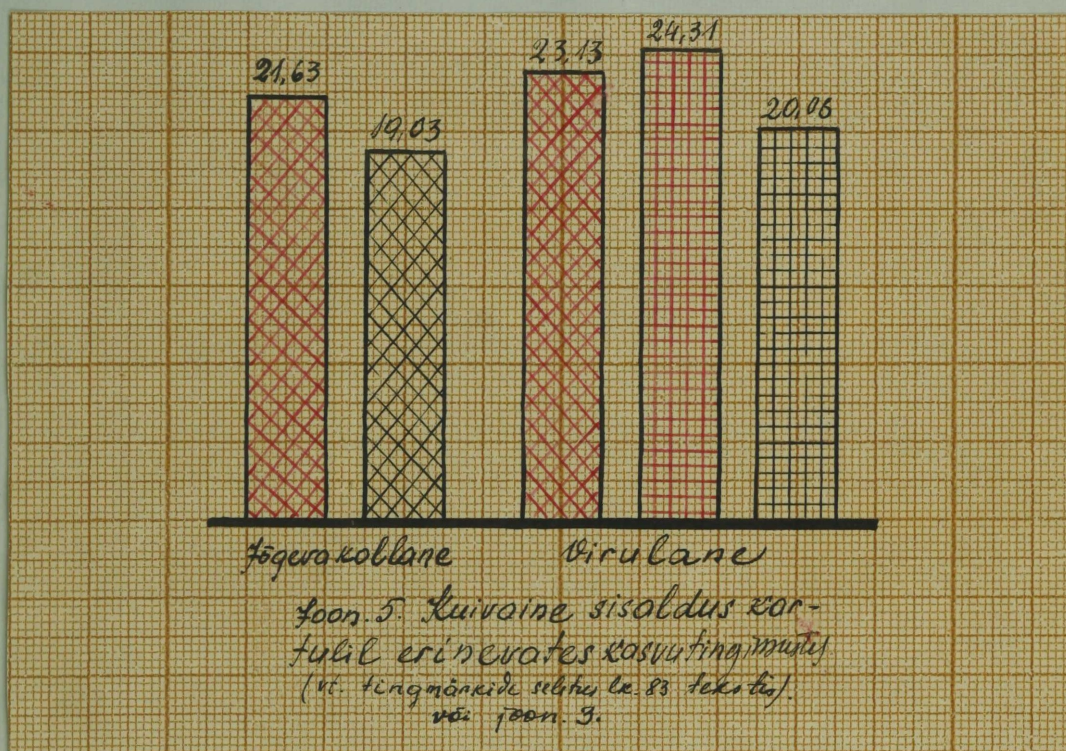 24,31
23,13
21,63
20,06
19,03
Jõgeva kollane Virulane
Joon. 5. Kuivaine sisaldus kar-
tulil erinevates kasvutingimustes
(vt. tingmärkide seletus lk. 83 tekstis).
või joon. 3.